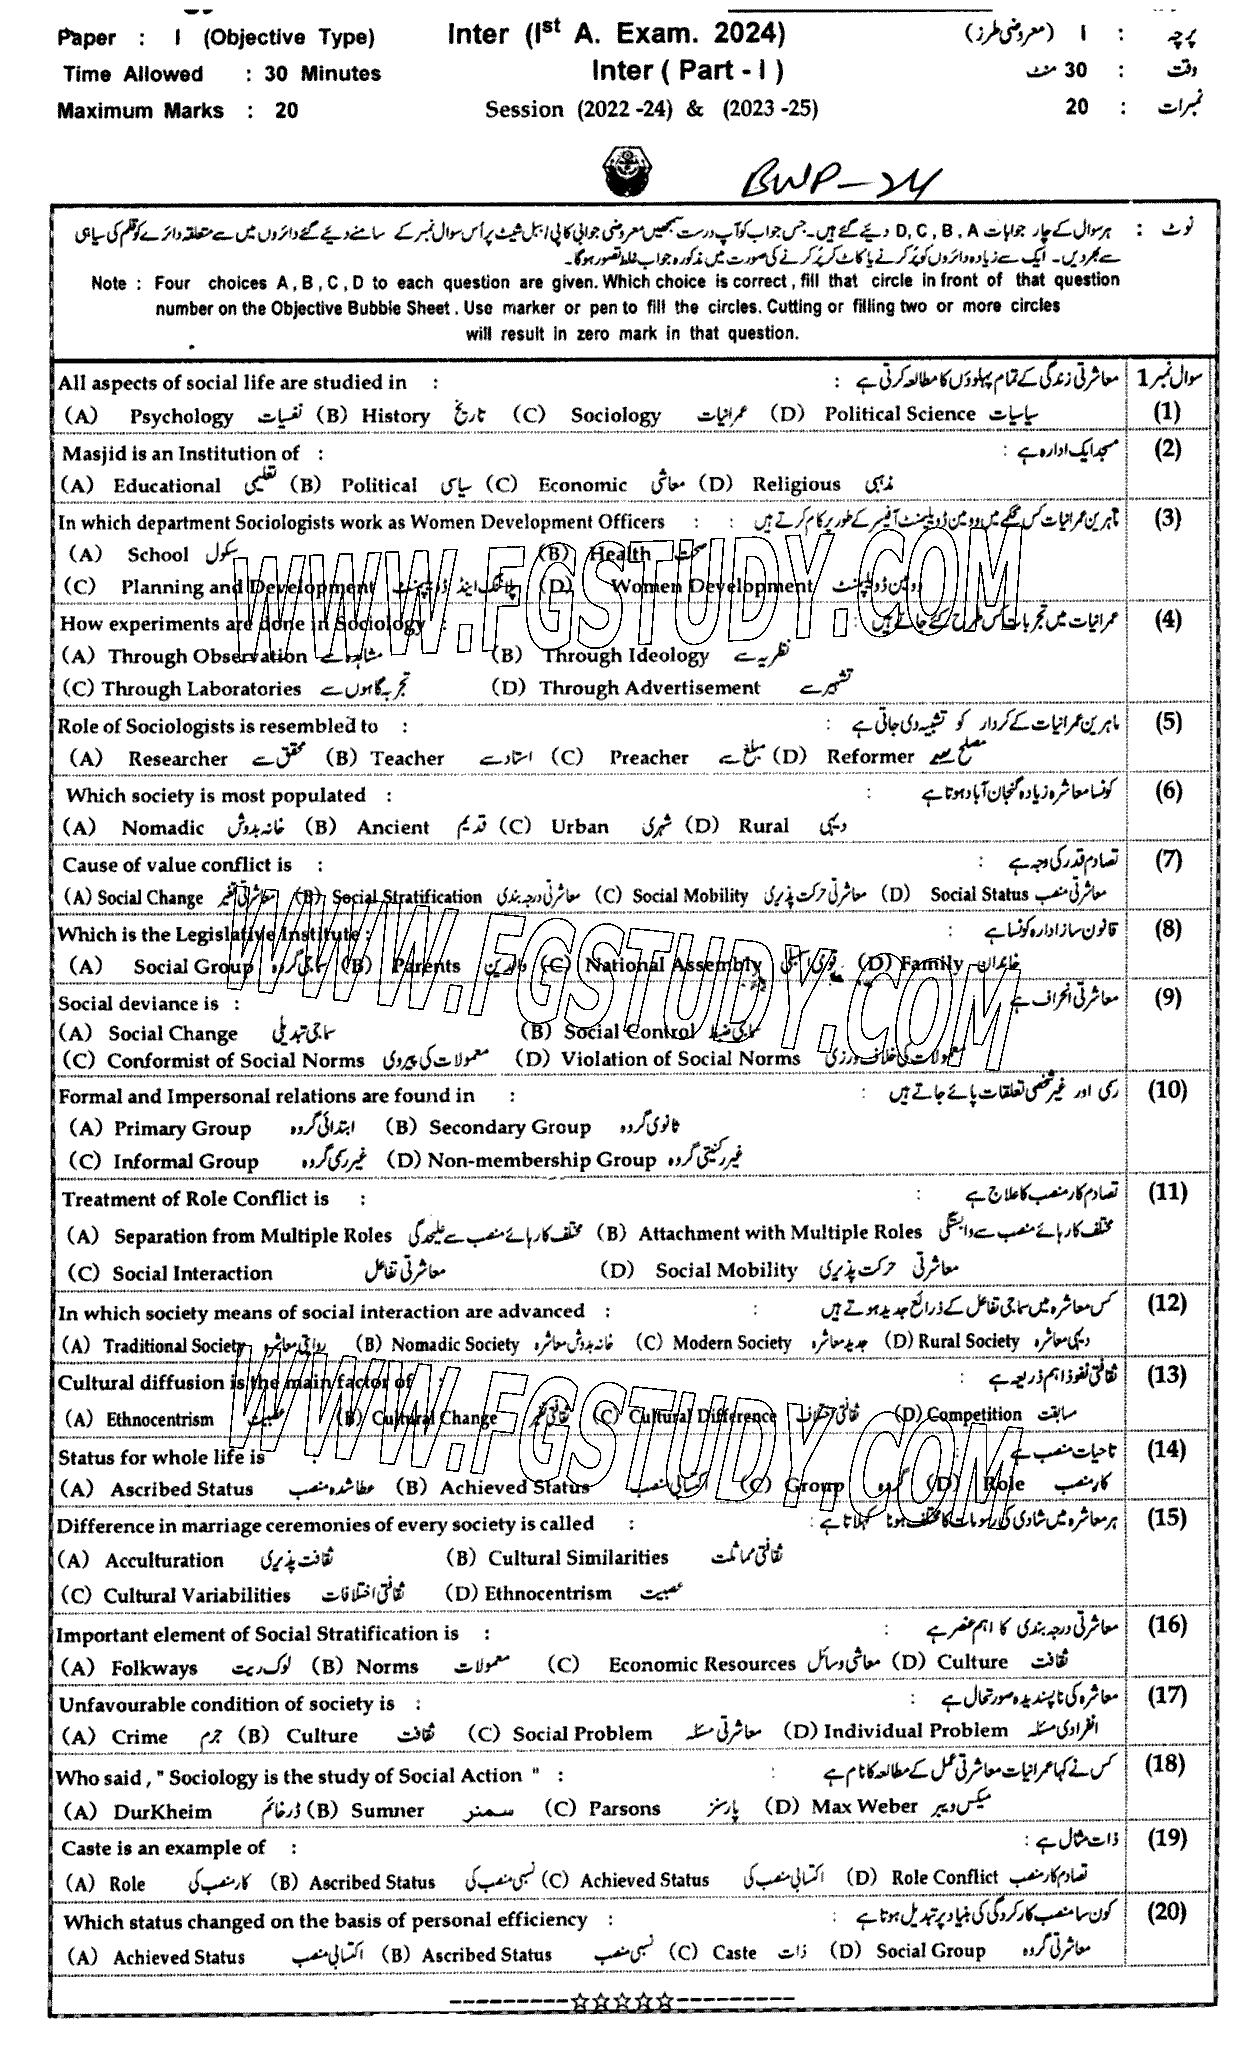 Paper : I (Objective Type) Inter (Ist A. Exam. 2024) پرچہ : I (معروضی طرز)
Time Allowed : 30 Minutes Inter ( Part - I ) وقت : 30 منٹ
Maximum Marks : 20 Session (2022 -24) & (2023 -25) نمبرات : 20
BWP-24
نوٹ : ہر سوال کے چار جوابات D, C, B, A دیئے گئے ہیں۔ جس جواب کو آپ درست سمجھیں معروضی جوابی کاپی / ببل شیٹ پر اُس سوال نمبر کے سامنے دیئے گئے دائروں میں سے متعلقہ دائرے کو قلم کی سیاہی
سے بھر دیں۔ ایک سے زیادہ دائروں کو پُر کرنے یا کاٹ کر پُر کرنے کی صورت میں مذکورہ جواب غلط تصور ہوگا۔
Note : Four choices A, B, C, D to each question are given. Which choice is correct, fill that circle in front of that question
number on the Objective Bubble Sheet. Use marker or pen to fill the circles. Cutting or filling two or more circles
will result in zero mark in that question.
All aspects of social life are studied in : معاشرتی زندگی کے تمام پہلوؤں کا مطالعہ کرتی ہے : سوال نمبر 1
(A) Psychology نفسیات (B) History تاریخ (C) Sociology عمرانیات (D) Political Science سیاسیات (1)
Masjid is an Institution of : مسجد ایک ادارہ ہے : (2)
(A) Educational تعلیمی (B) Political سیاسی (C) Economic معاشی (D) Religious مذہبی
In which department Sociologists work as Women Development Officers : ماہرین عمرانیات کس محکمے میں وومین ڈویلپمنٹ آفیسر کے طور پر کام کرتے ہیں : (3)
(A) School سکول (B) Health صحت
(C) Planning and Development پلاننگ اینڈ ڈویلپمنٹ (D) Women Development وومین ڈویلپمنٹ
How experiments are done in Sociology : عمرانیات میں تجربات کس طرح کئے جاتے ہیں : (4)
(A) Through Observation مشاہدہ سے (B) Through Ideology نظریہ سے
(C) Through Laboratories تجربہ گاہوں سے (D) Through Advertisement تشہیر سے
Role of Sociologists is resembled to : ماہرین عمرانیات کے کردار کو تشبیہ دی جاتی ہے : (5)
(A) Researcher محقق سے (B) Teacher استاد سے (C) Preacher مبلغ سے (D) Reformer مصلح سے
Which society is most populated : کونسا معاشرہ زیادہ گنجان آباد ہوتا ہے : (6)
(A) Nomadic خانہ بدوش (B) Ancient قدیم (C) Urban شہری (D) Rural دیہی
Cause of value conflict is : تصادم قدر کی وجہ ہے : (7)
(A) Social Change معاشرتی تغیر (B) Social Stratification معاشرتی درجہ بندی (C) Social Mobility معاشرتی حرکت پذیری (D) Social Status معاشرتی منصب
Which is the Legislative Institute : قانون ساز ادارہ کونسا ہے : (8)
(A) Social Group سماجی گروہ (B) Parents والدین (C) National Assembly قومی اسمبلی (D) Family خاندان
Social deviance is : معاشرتی انحراف ہے : (9)
(A) Social Change سماجی تبدیلی (B) Social Control سماجی ضبط
(C) Conformist of Social Norms معمولات کی پیروی (D) Violation of Social Norms معمولات کی خلاف ورزی
Formal and Impersonal relations are found in : رسمی اور غیر شخصی تعلقات پائے جاتے ہیں : (10)
(A) Primary Group ابتدائی گروہ (B) Secondary Group ثانوی گروہ
(C) Informal Group غیر رسمی گروہ (D) Non-membership Group غیر رکنیتی گروہ
Treatment of Role Conflict is : تصادم کار منصب کا علاج ہے : (11)
(A) Separation from Multiple Roles مختلف کار ہائے منصب سے علیحدگی (B) Attachment with Multiple Roles مختلف کار ہائے منصب سے وابستگی
(C) Social Interaction معاشرتی تفاعل (D) Social Mobility معاشرتی حرکت پذیری
In which society means of social interaction are advanced : کس معاشرہ میں سماجی تفاعل کے ذرائع جدید ہوتے ہیں : (12)
(A) Traditional Society روایتی معاشرہ (B) Nomadic Society خانہ بدوش معاشرہ (C) Modern Society جدید معاشرہ (D) Rural Society دیہی معاشرہ
Cultural diffusion is the main factor of : ثقافتی نفوذ اہم ذریعہ ہے : (13)
(A) Ethnocentrism عصبیت (B) Cultural Change ثقافتی تغیر (C) Cultural Difference ثقافتی اختلاف (D) Competition مسابقت
Status for whole life is : تاحیات منصب ہے : (14)
(A) Ascribed Status عطا شدہ منصب (B) Achieved Status اکتسابی منصب (C) Group گروہ (D) Role کار منصب
Difference in marriage ceremonies of every society is called : ہر معاشرہ میں شادی کی رسومات کا مختلف ہونا کہلاتا ہے : (15)
(A) Acculturation ثقافت پذیری (B) Cultural Similarities ثقافتی مماثلت
(C) Cultural Variabilities ثقافتی اختلافات (D) Ethnocentrism عصبیت
Important element of Social Stratification is : معاشرتی درجہ بندی کا اہم عنصر ہے : (16)
(A) Folkways لوک ریت (B) Norms معمولات (C) Economic Resources معاشی وسائل (D) Culture ثقافت
Unfavourable condition of society is : معاشرہ کی ناپسندیدہ صورتحال ہے : (17)
(A) Crime جرم (B) Culture ثقافت (C) Social Problem معاشرتی مسئلہ (D) Individual Problem انفرادی مسئلہ
Who said, " Sociology is the study of Social Action " : کس نے کہا عمرانیات معاشرتی عمل کے مطالعہ کا نام ہے : (18)
(A) DurKheim ڈرخائم (B) Sumner سمنر (C) Parsons پارسنز (D) Max Weber میکس ویبر
Caste is an example of : ذات مثال ہے : (19)
(A) Role کار منصب کی (B) Ascribed Status نسبی منصب کی (C) Achieved Status اکتسابی منصب کی (D) Role Conflict تصادم کار منصب
Which status changed on the basis of personal efficiency : کون سا منصب کارکردگی کی بنیاد پر تبدیل ہوتا ہے : (20)
(A) Achieved Status اکتسابی منصب (B) Ascribed Status نسبی منصب (C) Caste ذات (D) Social Group معاشرتی گروہ
WWW.FGSTUDY.COM
WWW.FGSTUDY.COM
WWW.FGSTUDY.COM